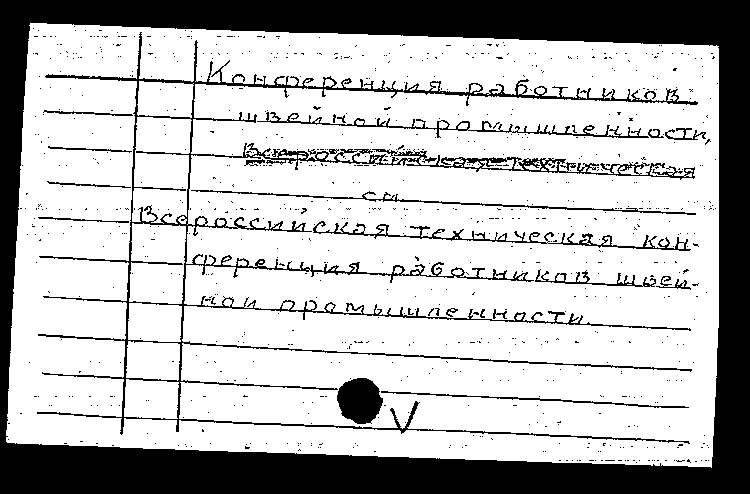 Конференция работников
швейной промышленности,
Всероссийская техническая
см.
Всероссийская техническая кон-
ференция работников швей-
ной промышленности.
V